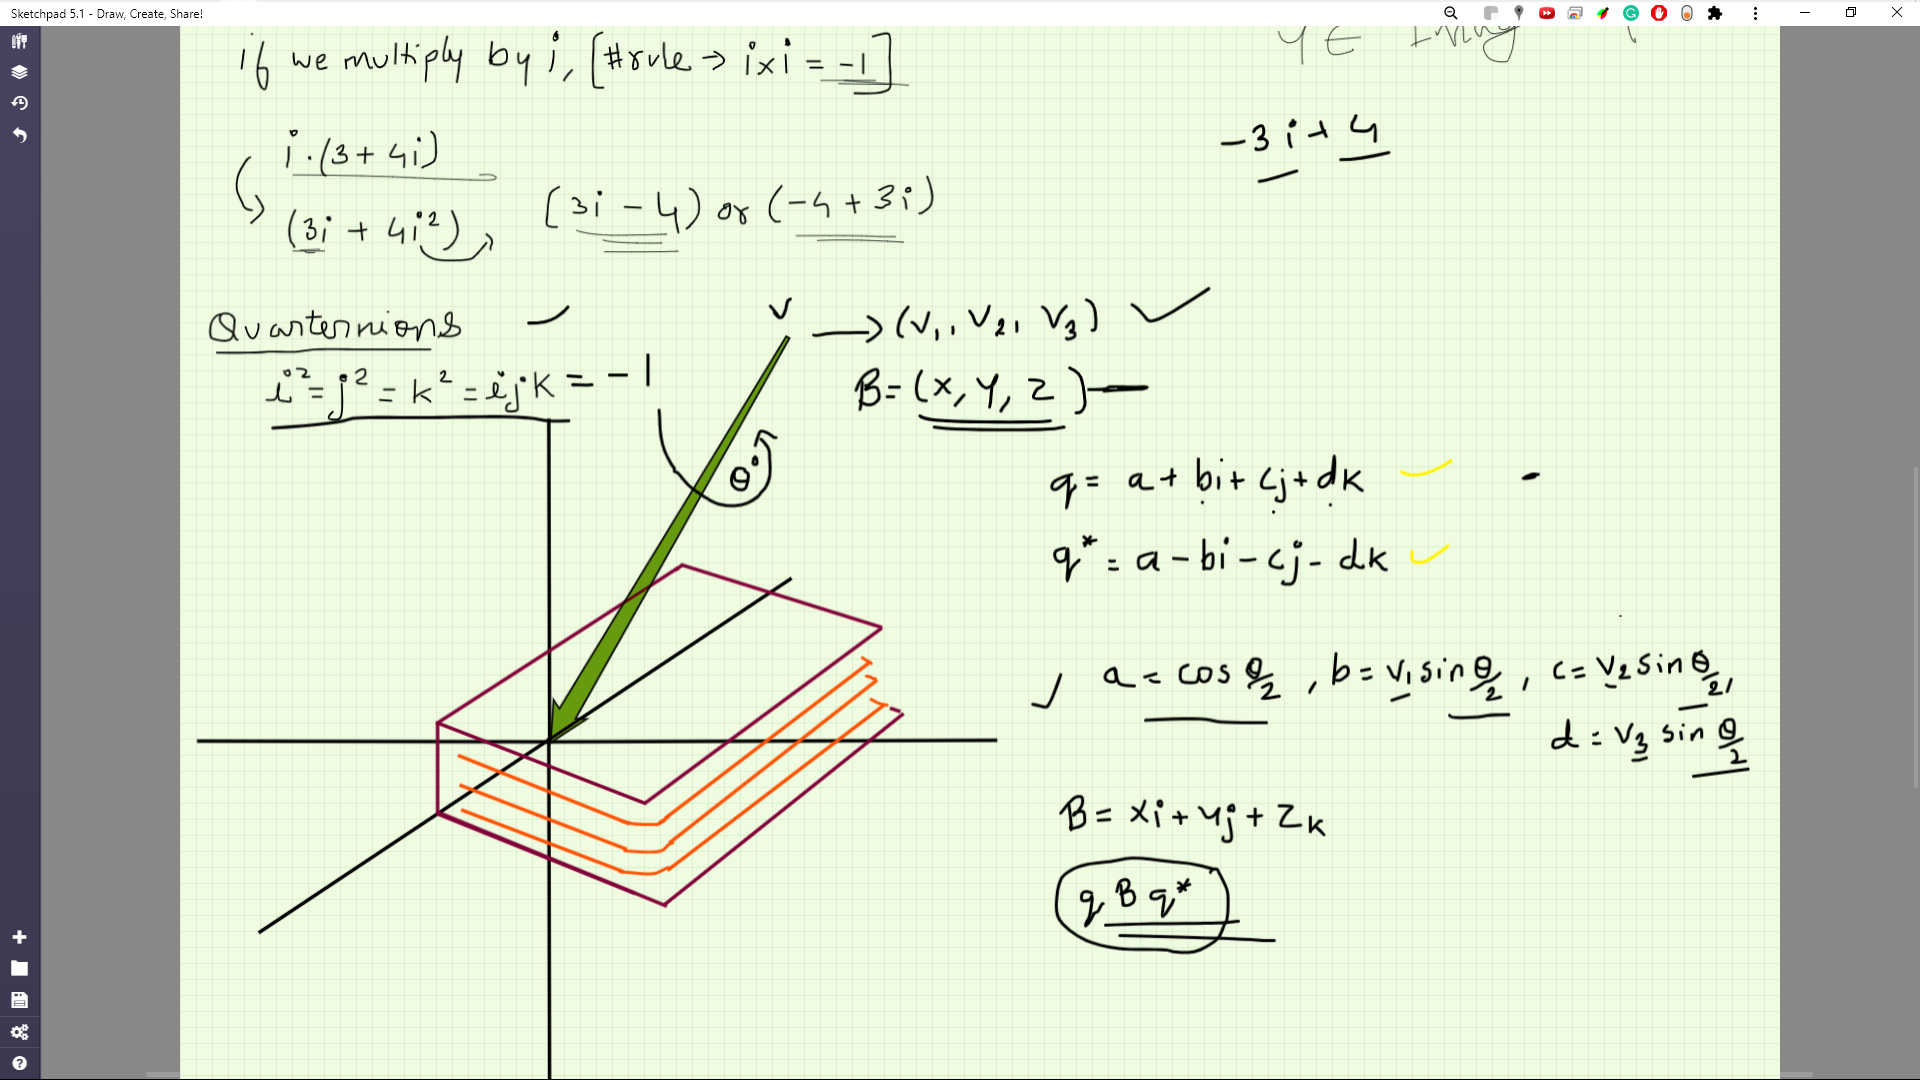 Sketchpad 5.1 - Draw, Create, Share!
if we multiply by i, [#rule → i×i = -1]
-3i+4
i·(3+4i)
(3i + 4i²)
(3i - 4) or (-4+3i)
Quarternions
i² = j² = k² = ijk = -1
v → (v₁, v₂, v₃)
B = (x, y, z)
θ°
q = a + bi + cj + dk
q* = a - bi - cj - dk
a = cos θ/2, b = v₁ sin θ/2, c = v₂ sin θ/2,
d = v₃ sin θ/2
B = xi + yj + zk
q B q*